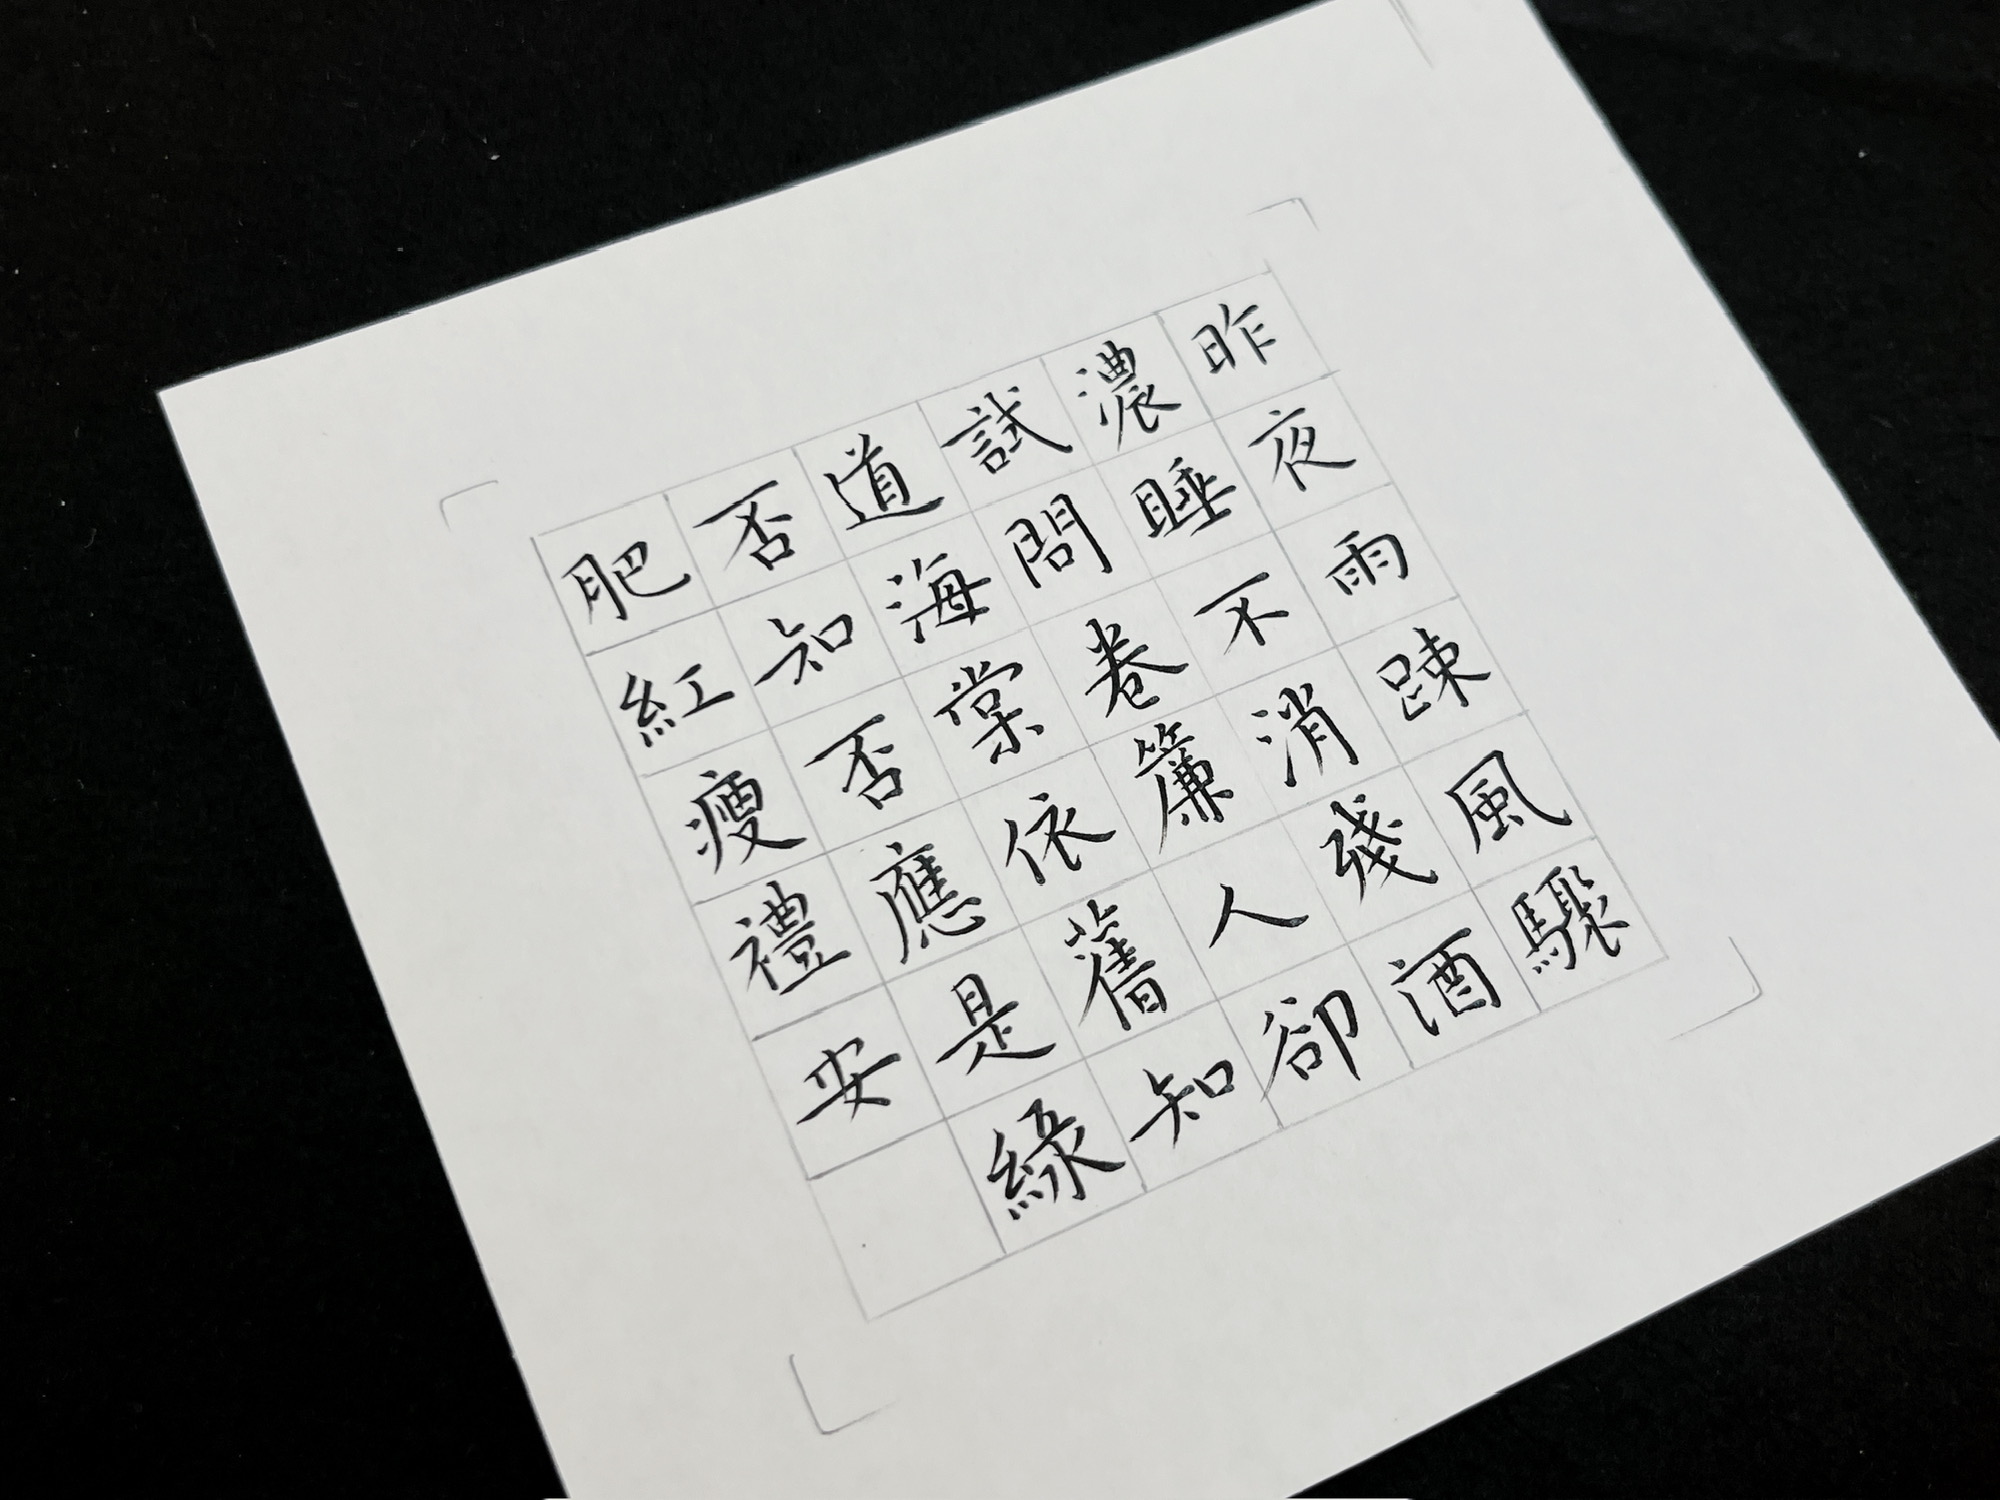 昨夜雨踈風驟
濃睡不消殘酒
試問卷簾人卻
道海棠依舊知
否知否應是綠
肥紅瘦禮安